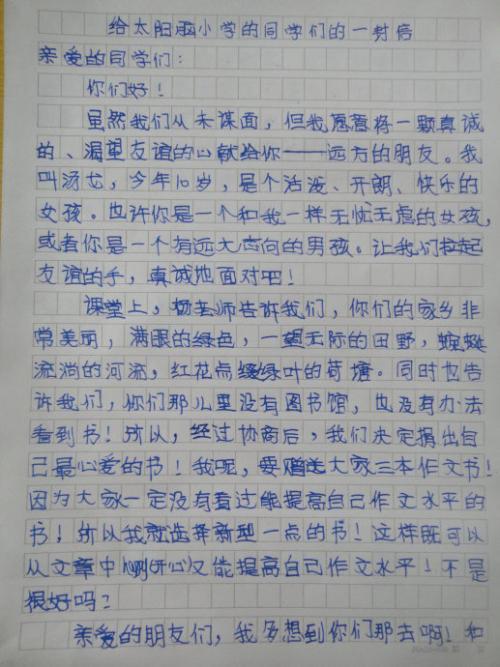 给太阳庙小学的同学们的一封信
亲爱的同学们:
你们好!
虽然我们从未谋面,但我愿意将一颗真诚
的、渴望友谊的心献给你——远方的朋友。我
叫汤戈,今年10岁,是个活泼、开朗、快乐的
女孩。也许你是一个和我一样无忧无虑的女孩,
或者你是一个有远大志向的男孩。让我们拉起
友谊的手,真诚地面对吧!
课堂上,杨老师告诉我们,你们的家乡非
常美丽,满眼的绿色,一望无际的田野,蜿蜒
流淌的河流,红花点缀绿叶的荷塘。同时也告
诉我们,你们那儿里没有图书馆,也没有办法
看到书!所以,经过协商后,我们决定捐出自
己最心爱的书!我呢,要赠送大家三本作文书!
因为大家一定没有看过能提高自己作文水平的
书!所以我就选择新型一点的书!这样既可以
从文章中(开心)又能提高自己作文水平!不是
很好吗?
亲爱的朋友们,我多想到你们那去啊!和